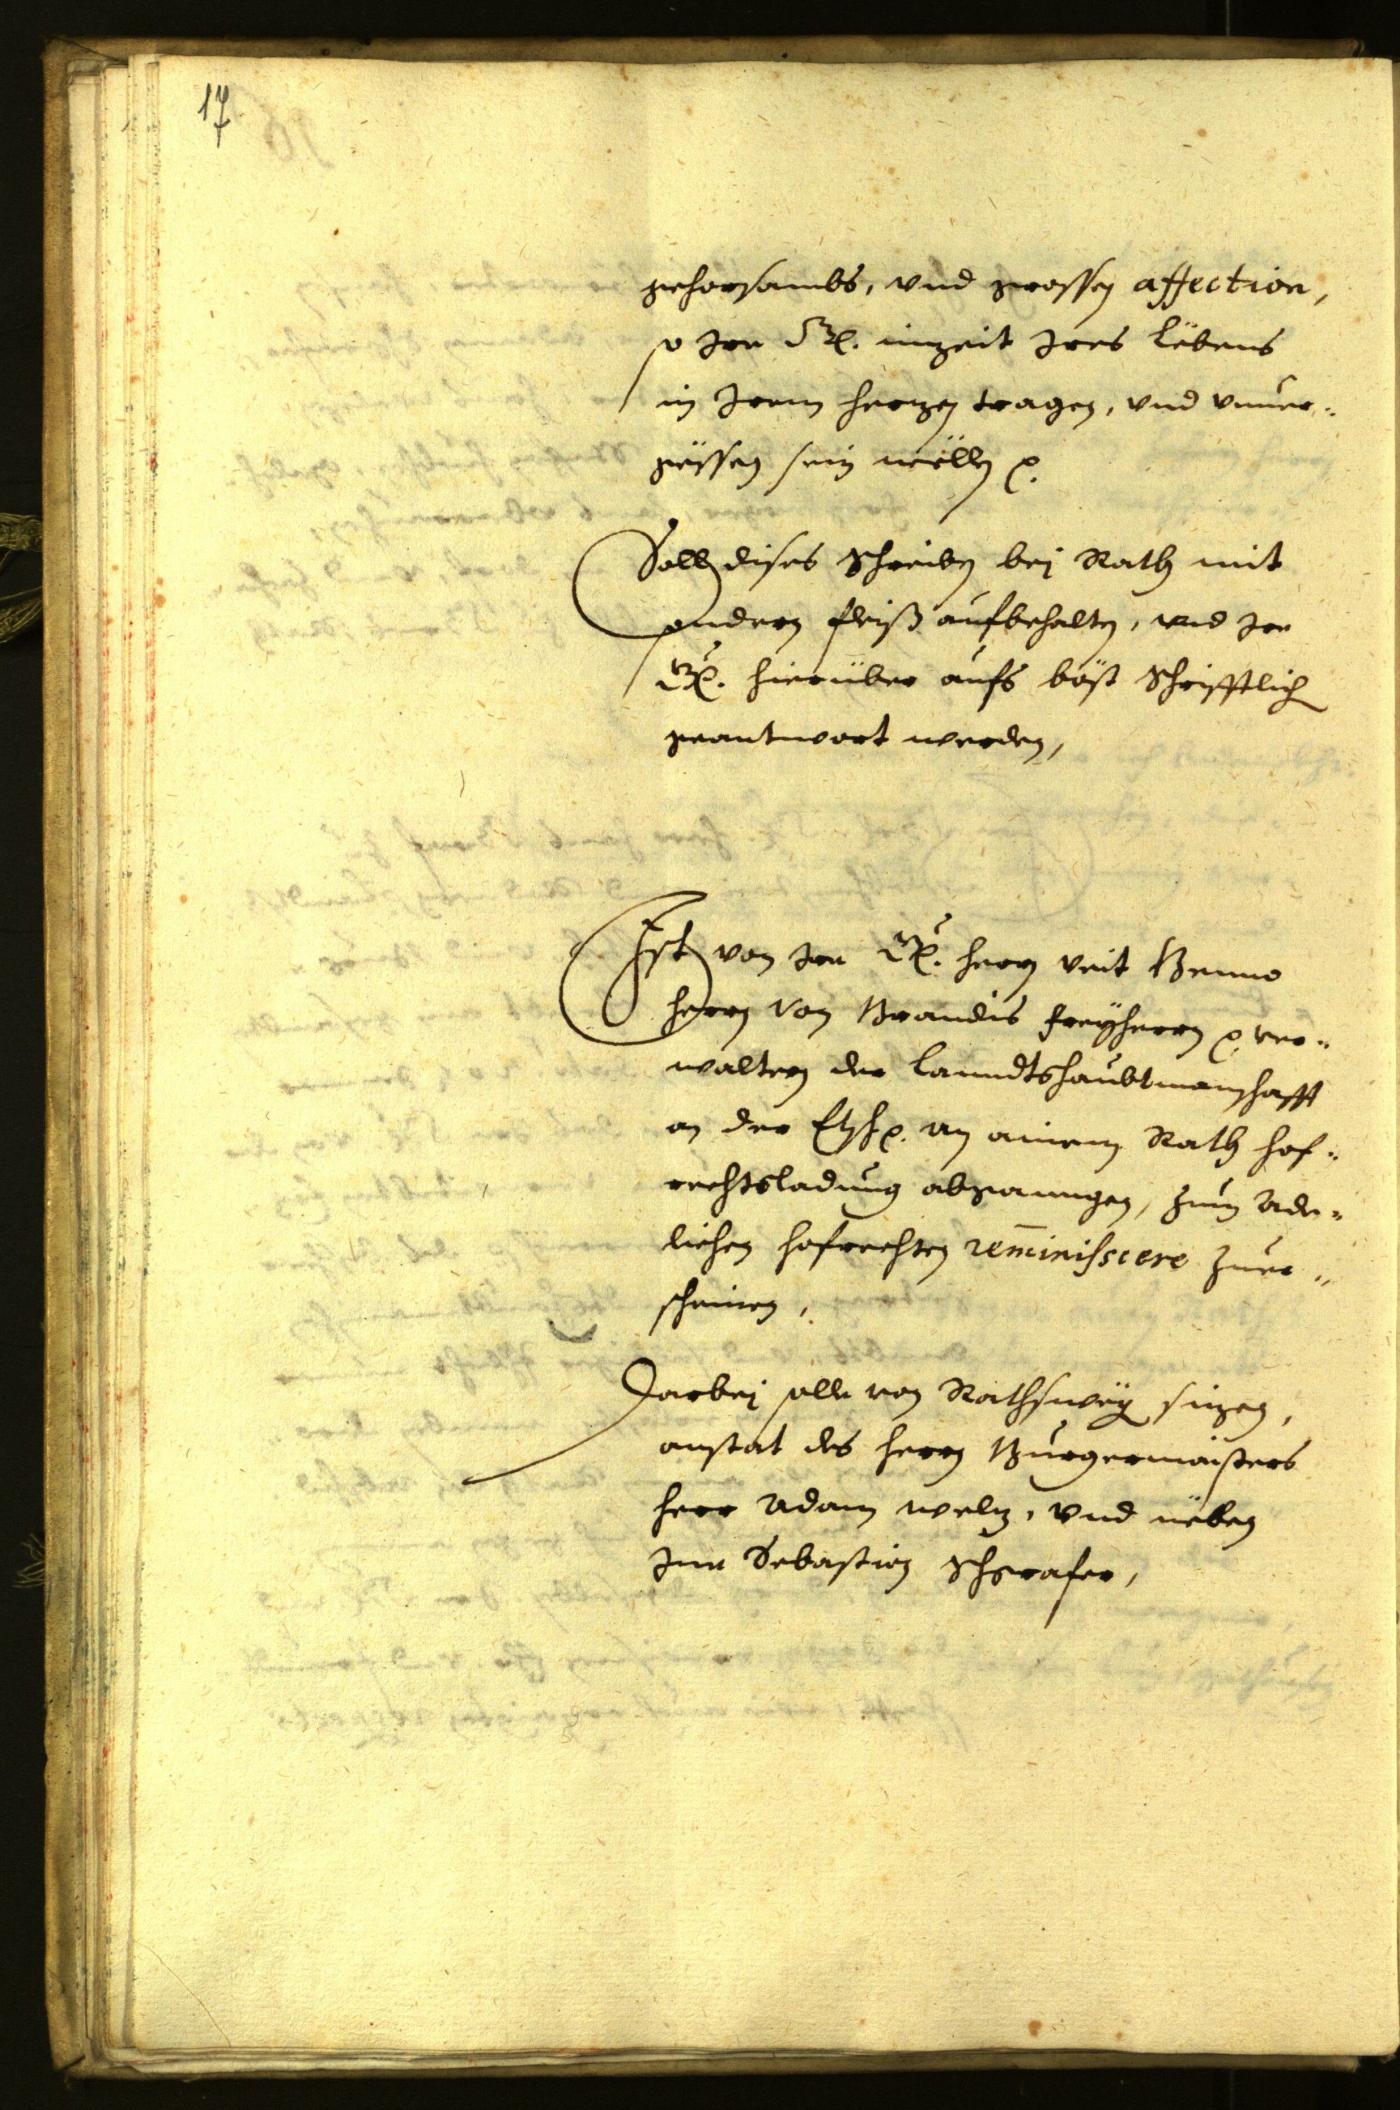 17
gehorsambs, vnd grossen affection,
so Irr Gn. inzeit Ires Lebens
in Irem herzen tragen, vnd vnuer„
gessen sein wellen ꝛ.
Solle dises Schreiben bej Rath mit
sondern fleiß aufbehalten, vnd Irr
Gn. hierüber aufs böst Schrifftlich
geantwort werden,
Ist von Irr Gn. herrn Veit Benno
herrn von Brandis freyherrn ꝛ ver„
waltern der Lanndtshaubtmanschafft
an der Etsch ꝛ. an ainem Rath hof„
rechtsladung abganngen, zum Ade„
lichen hofrechten reminiscere zuer„
scheinen,
Darbej solle von Rathsweg sitzen,
anstat des herrn Burgermaisters
herr Adam Welz, vnd neben
Ime Sebastian Schgrafer,